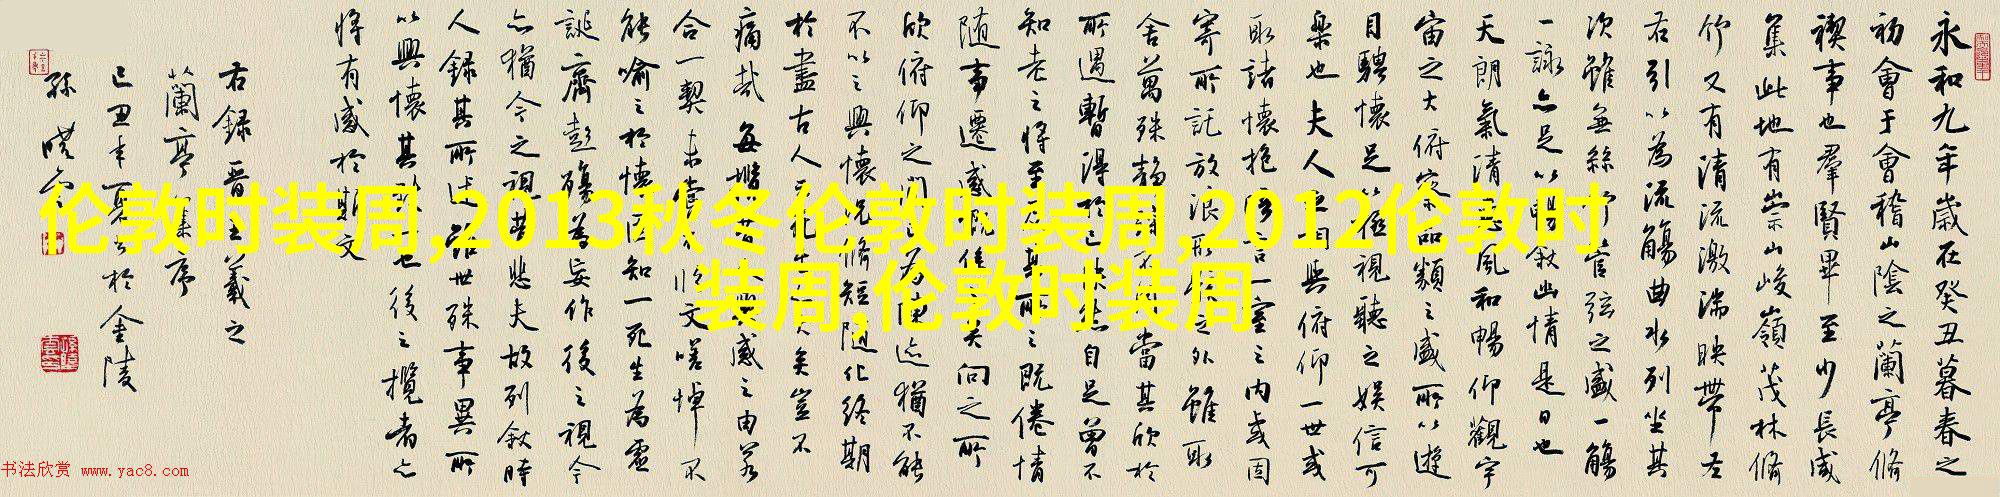 永和九年歲在癸丑暮春之
初會于會稽山陰之蘭亭脩
禊事也羣賢畢至少長咸
集此地有崇山峻嶺茂林脩
竹又有清流激湍映帶左
右引以為流觴曲水列坐其
次雖無絲竹管弦之盛一觴
一詠亦足以暢敘幽情是日也
天朗氣清惠風和暢仰觀宇
宙之大俯察品類之盛所以遊
目騁懷足以極視聽之娛信可
樂也夫人之相與俯仰一世或
取諸懷抱悟言一室之內或因
寄所託放浪形骸之外雖取
舍萬殊靜躁不同當其欣於
所遇暫得於己快然自足曾不
知老之將至及其所之既倦情
隨事遷感慨係之矣向之所
欣俯仰之間已為陳迹猶不能
不以之興懷況脩短隨化終期
於盡古人云死生亦大矣豈不
痛哉每攬昔人興感之由若
合一契未嘗不臨文嗟悼不
能喻之於懷固知一死生為虛
誕齊彭殤為妄作後之視今
亦猶今之視昔悲夫故列敘時
人錄其所述雖世殊事異所
以興懷其致一也後之攬者亦
將有感於斯文
右錄晉王羲之
蘭亭集序
己丑年夏日於金陵
孫曉雲
伦敦时装周,2013秋冬伦敦时装周,2012伦敦时
装周,伦敦时装周
书法欣赏 www.yac8.com